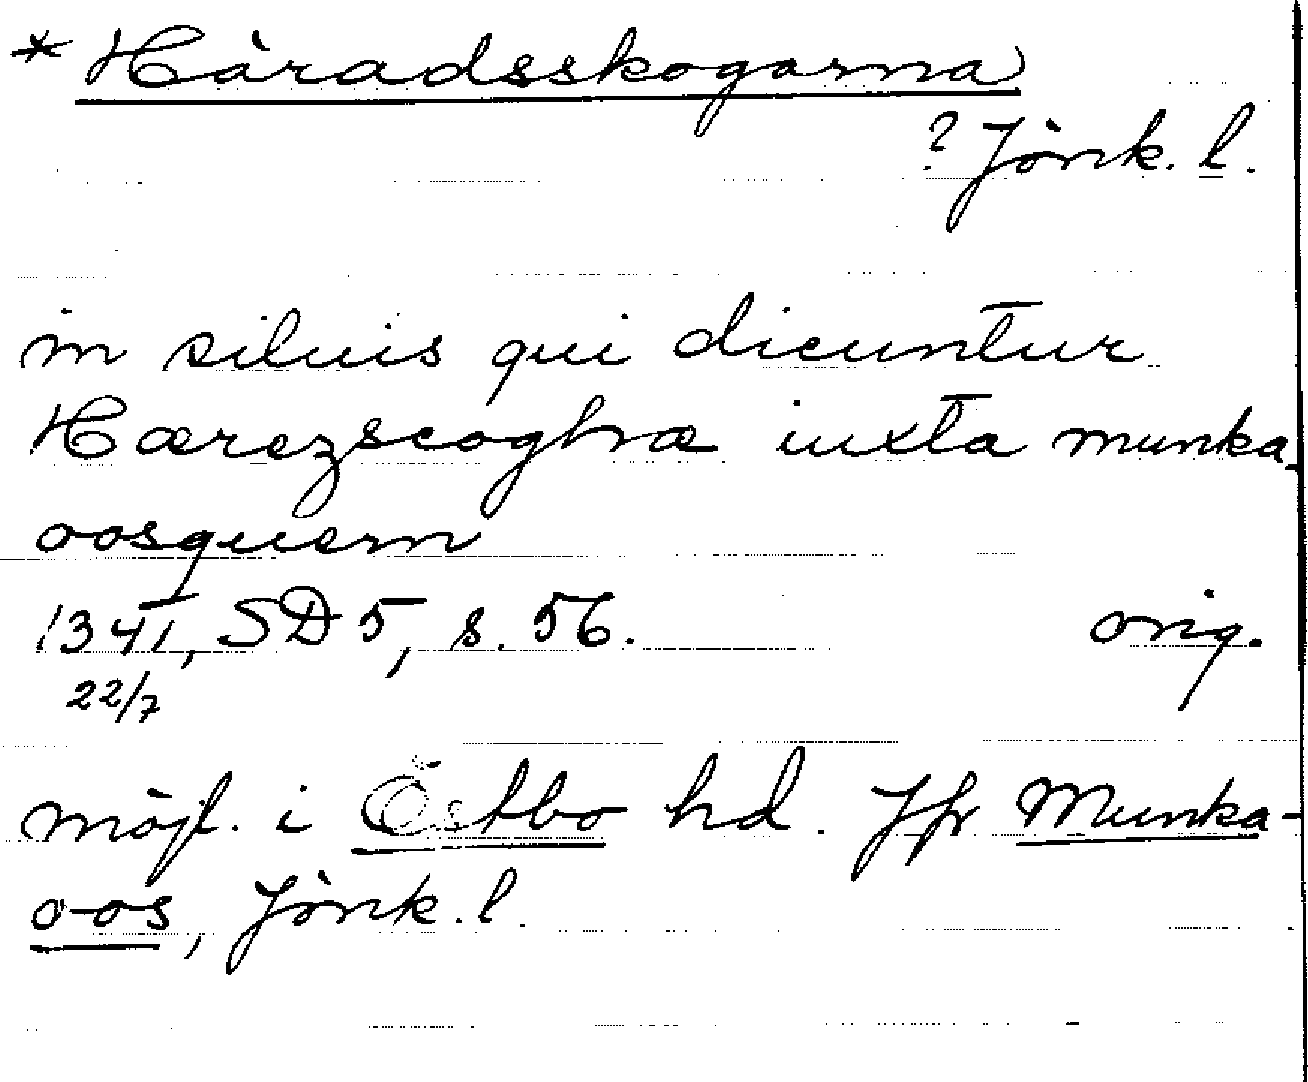 * Häradsskogarna
? Jönk. l.
in siluis qui dicuntur
Hærezscoghæ iuxta munka-
oosquern
1341, SD 5, s. 56. orig.
22/7
möjl. i Östbo hd. Jfr Munka-
oos, Jönk. l.